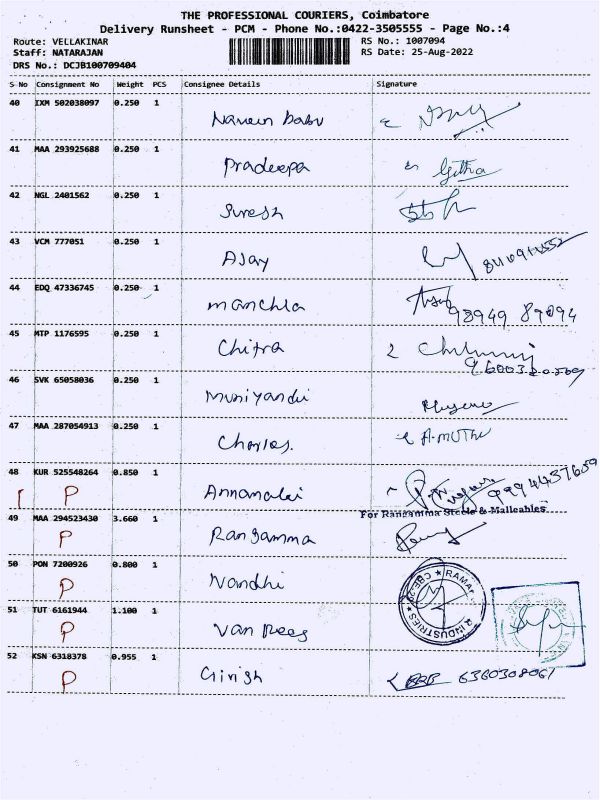 THE PROFESSIONAL COURIERS, Coimbatore
Delivery Runsheet - PCM - Phone No.:0422-3505555 - Page No.:4
Route: VELLAKINAR RS No.: 1007094
Staff: NATARAJAN RS Date: 25-Aug-2022
DRS No.: DCJB100709404
S No Consignment No Weight PCS Consignee Details Signature
40 IXM 502038097 0.250 1 Naveen babu
41 MAA 293925688 0.250 1 Pradeepa Githa
42 NGL 2401562 0.250 1 Suresh
43 VCM 777051 0.250 1 AJay
44 EDQ 47336745 0.250 1 manchla
98949 89094
45 MTP 1176595 0.250 1 Chitra
9600320509
46 SVK 65058036 0.250 1 Muniyandi
47 MAA 287054913 0.250 1 Charles. A.MUTHU
48 KUR 525548264 0.850 1 Annamalai 9994437609
P
For Rangamma Steels & Malleables
49 MAA 294523430 3.660 1 Rangamma
P
50 PON 7200926 0.800 1 Nandhi
P
51 TUT 6161944 1.100 1 Van Rees
P
52 KSN 6318378 0.955 1 Girish 6360308061
P